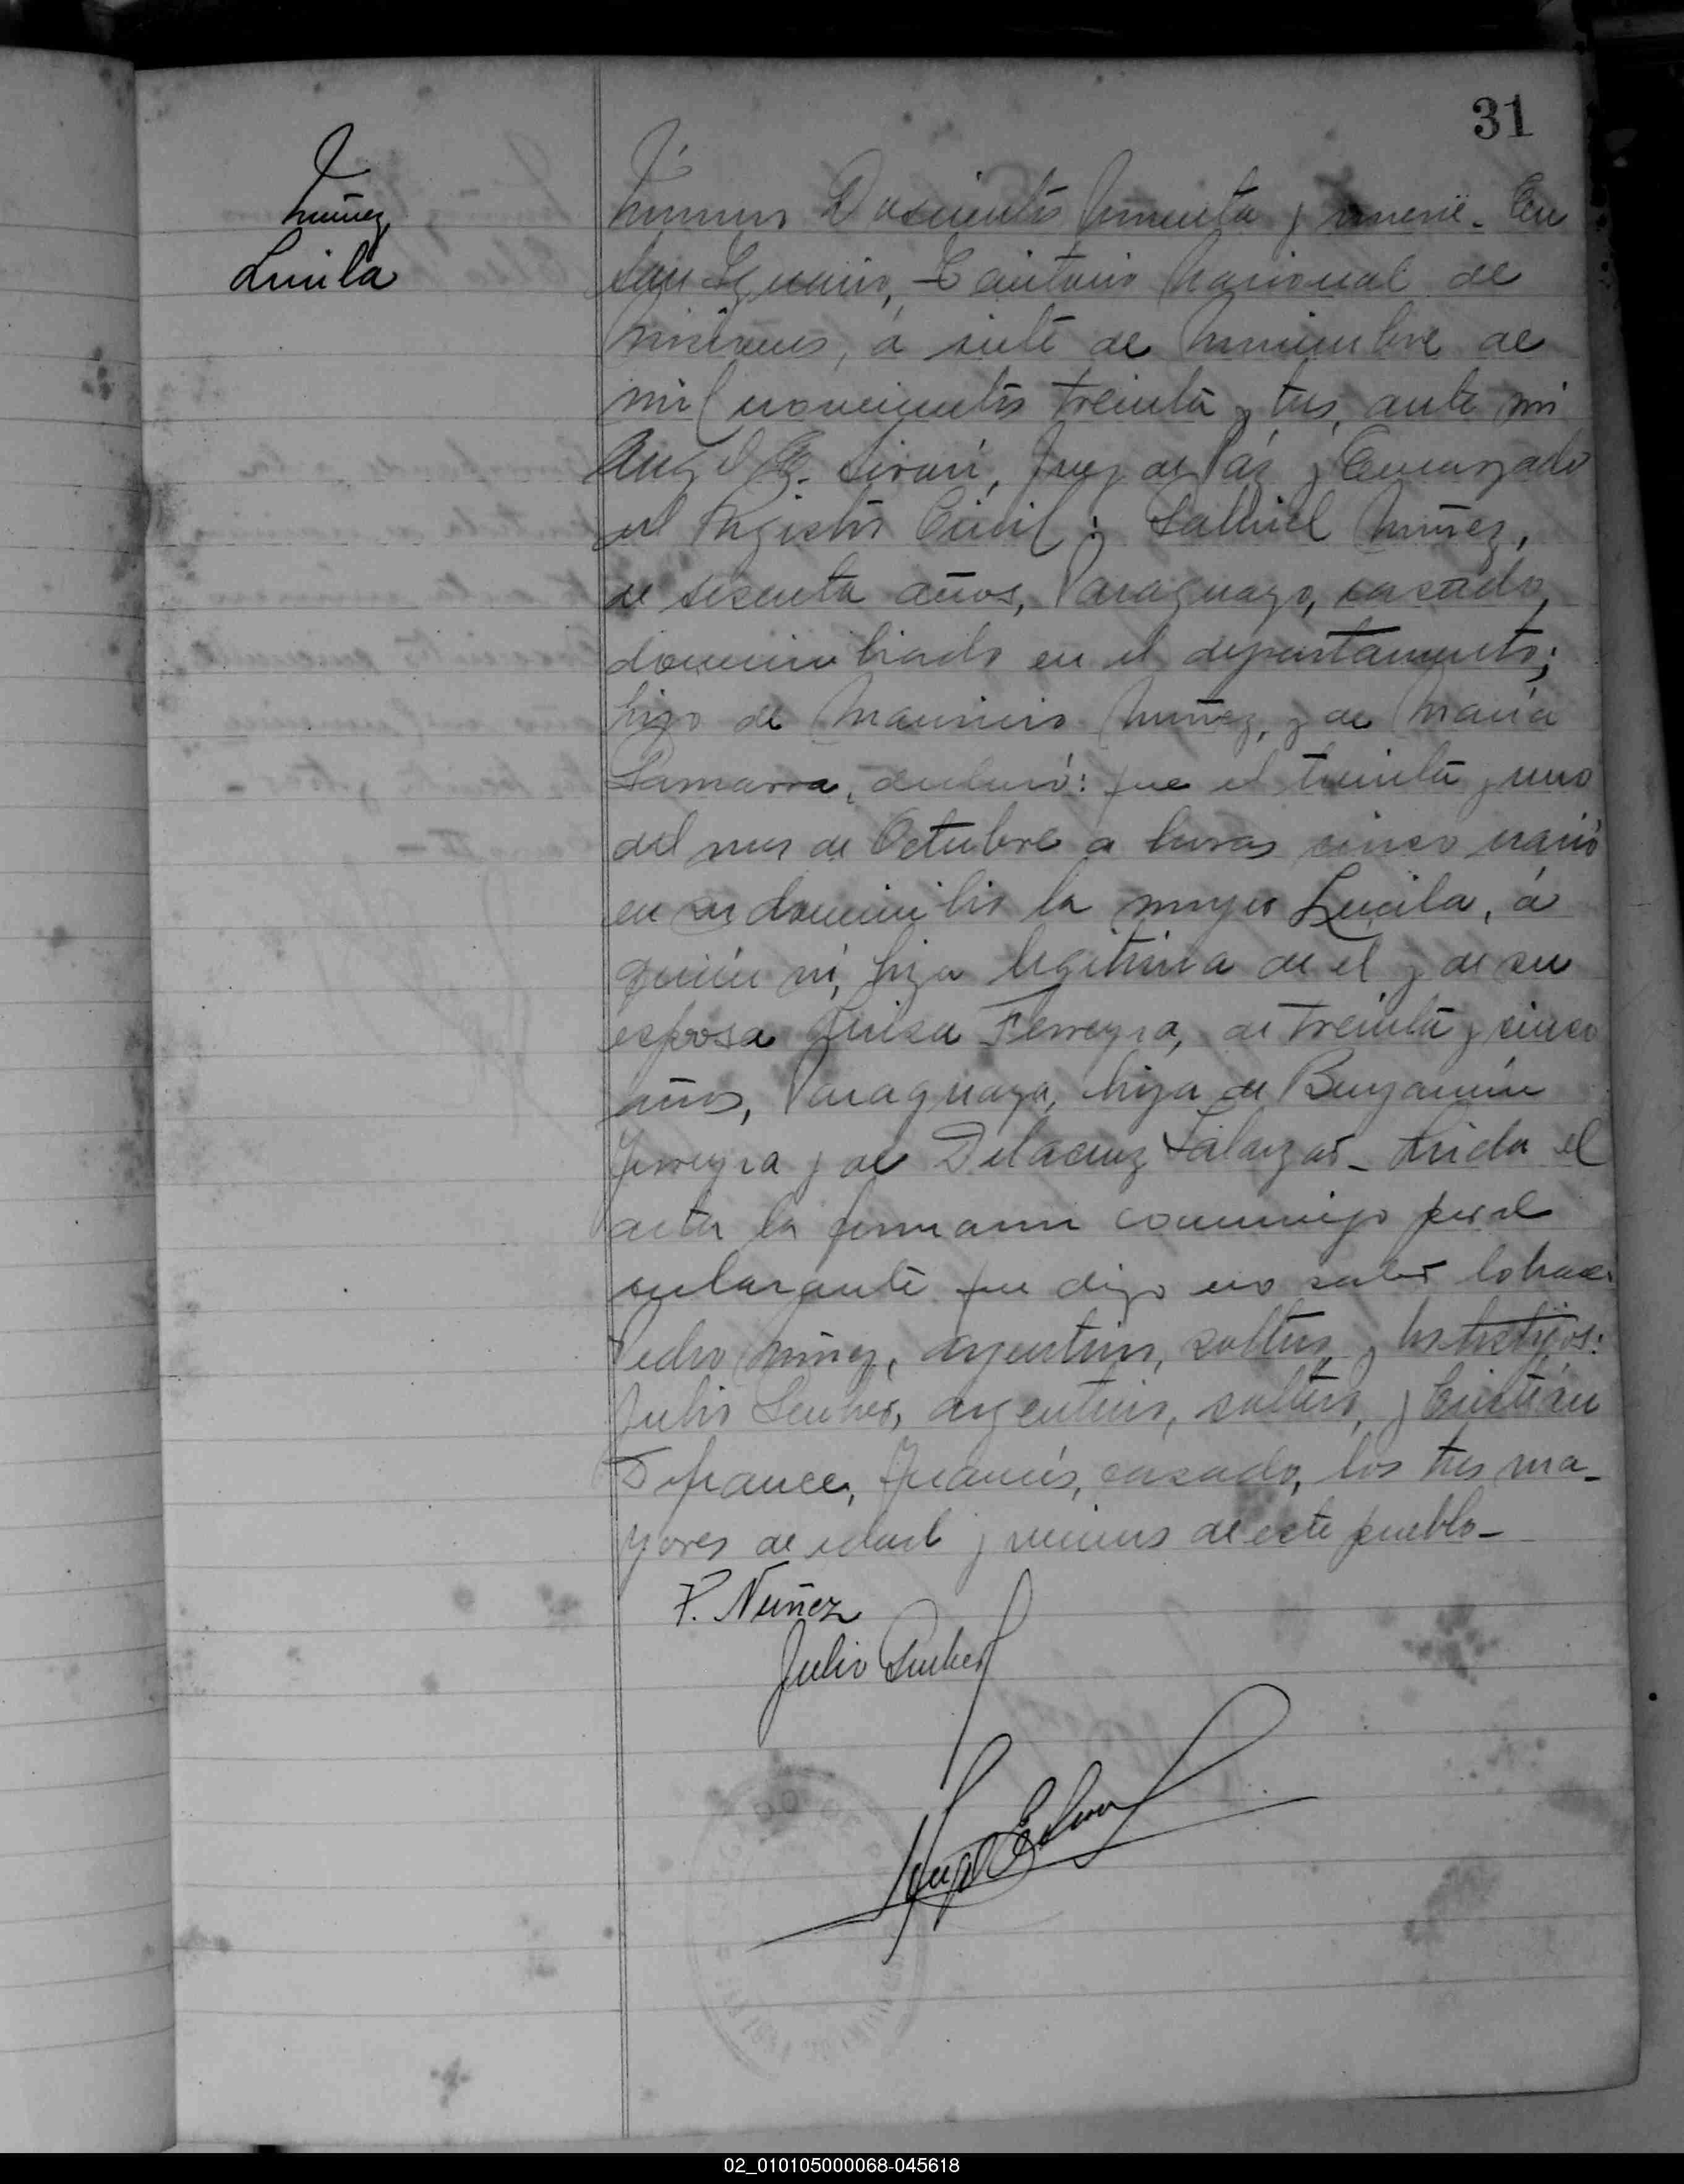 31
Nuñez
Lucila
Número Doscientos noventa y nueve. En
San Ignacio, Territorio Nacional de
Misiones, á siete de Noviembre de
mil novecientos treinta y tres, ante mi
Angel E. Juez de Páz y Encargado
del Registro Civil; Gabriel Nuñez,
de sesenta años, Paraguayo, casado,
domiciliado en el departamento;
hijo de Mauricio Nuñez, y de María
Gamarra, declaró: que el treinta y uno
del mes de Octubre a horas cinco nació
en su domicilio la mujer Lucila, á
quién ví, hija legítima de el y de su
esposa Luisa Ferreyra, de treinta y cinco
años, Paraguaya, hija de Benjamín
Ferreyra y de Delacruz Salazar_ Leida el
acta la firmaron conmigo por el
declarante que dijo no saber lo hace
Pedro Nuñez, argentino, soltero y los testigos:
Julio argentino, soltero, y Cristián
Defrance, Francés, casado, los tres ma_
yores de edad y vecinos de este pueblo_
P. Nuñez
Julio
02_010105000068-045618